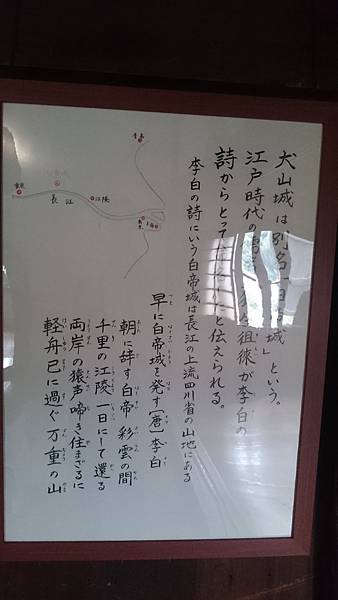 犬山城は別名「白帝城」という。
江戸時代の 荻生徂徠が李白の
詩からとって と伝えられる。
李白の詩にいう白帝城は長江の上流四川省の山地にある
早に白帝城を発す [唐] 李白
朝に辞す白帝 彩雲の間
千里の江陵 一日にして還る
両岸の猿声 啼き住まざるに
軽舟已に過ぐ 万重の山
長江
江陵